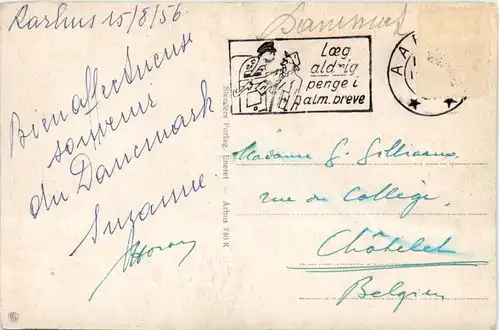 Aarhus 15/8/56.
Danmark
Læg
aldrig
penge i
alm. breve
AA
Bien affectueux
souvenir
du Danemark
Suzanne.
Stenders Forlag. Eneret
Århus 740 K
Madame G. Gilliaux.
rue du Collège,
Châtelet
Belgien